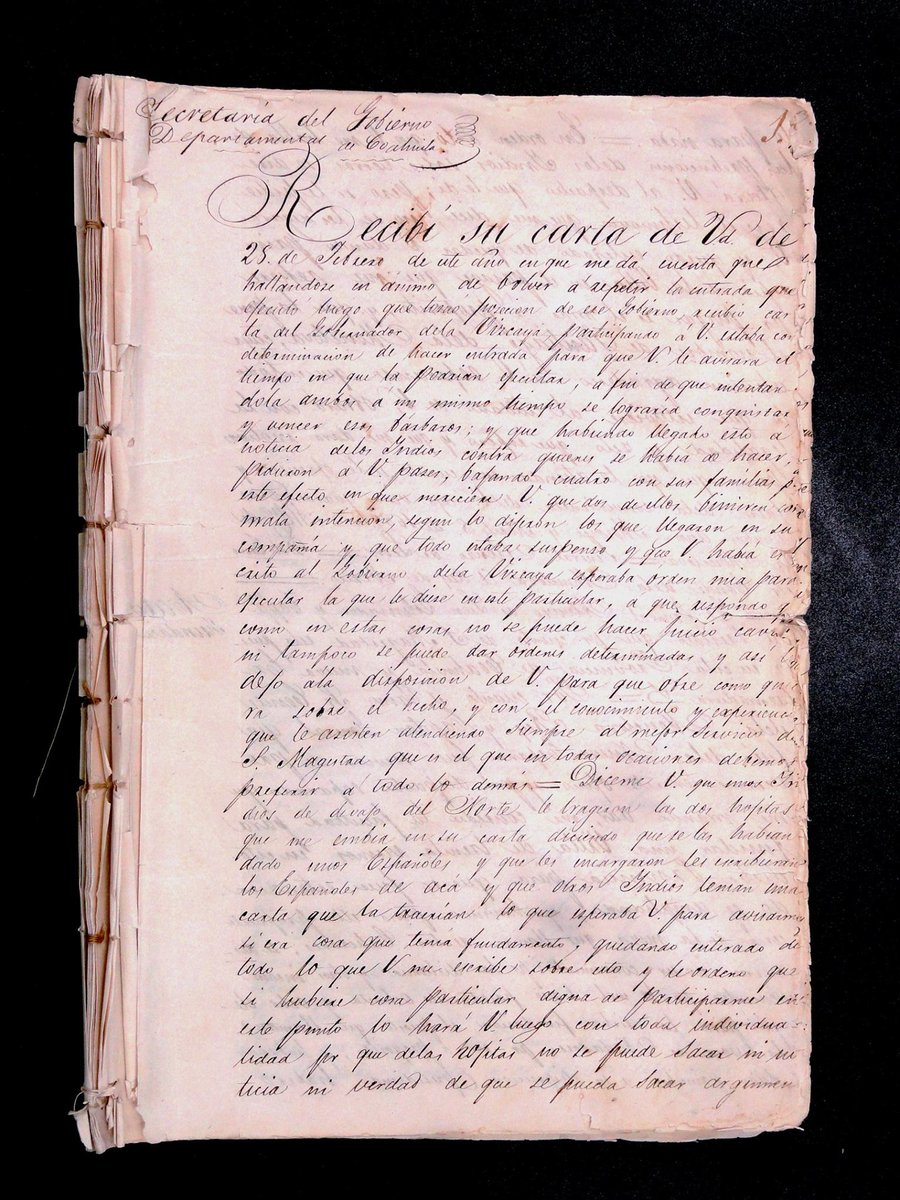 Secretaría del Gobierno
Departamental de Coahuila
1.
Recibí su carta de Vd. de
25. de Febrero de este año en que me dá cuenta que
hallandose en ánimo de bolver á repetir la entrada que
ejecutó luego que tomó posicion de ese Gobierno recibio car
ta del Gobernador dela Vizcaya participando á V. estaba con
determinacion de hacer entrada para que V. le avisara el
tiempo en que la podrian ejecutar, a fin de que intentan
dola ambos á un mismo tiempo se lograría conquistar
y vencer esos bárbaros; y que habiendo llegado esto á
noticia delos Indios contra quienes se habia de hacer,
pidieron á V. pases, bajando cuatro con sus familias pa
este efecto en que V. que dos de ellos binieren con
mala intención, segun lo dijeron los que llegaron en su
compañía y que todo estaba suspenso y que V. habiá es
crito al Gobierno dela Vizcaya esperaba órden mia para
ejecutar la que le diese en este particular, a que respondo
como en estas cosas no se puede hacer juicio caval
ni tampoco se puede dar ordenes determinadas y así lo
dejo ala disposicion de V. para que obre como quie
ra sobre el hecho, y con el conocimiento y experiencia
que le asisten atendiendo siempre al mejor Servicio de
S. Magestad que es el que en todas ocaciones debemos
preferir á todo lo demás = Diceme V. que unos In
dios de devajo del Norte le trageron las dos hojitas
que me embia en su carta diciendo que se las habian
dado unos Españoles y que les encargaron les escribieran
los Españoles de acá y que otros Indios tenian una
carta que la traerían lo que esperaba V. para avisarme
si era cosa que tenía fundamento, quedando enterado de
todo lo que V. me escribe sobre esto y le ordeno que
si hubiere cosa particular digna de participarme en
este punto lo hará V. luego con toda individua
lidad pr que delas hojitas no se puede sacar ni no
ticia ni verdad de que se pueda sacar argumen